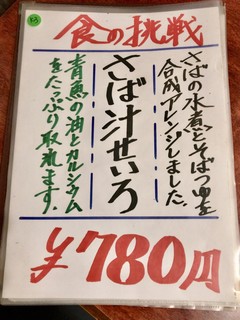 食の挑戦
さばの水煮とそばつゆを
合成アレンジしました。
さば汁せいろ
青魚の油とカルシウム
をたっぷり取れます。
¥780円